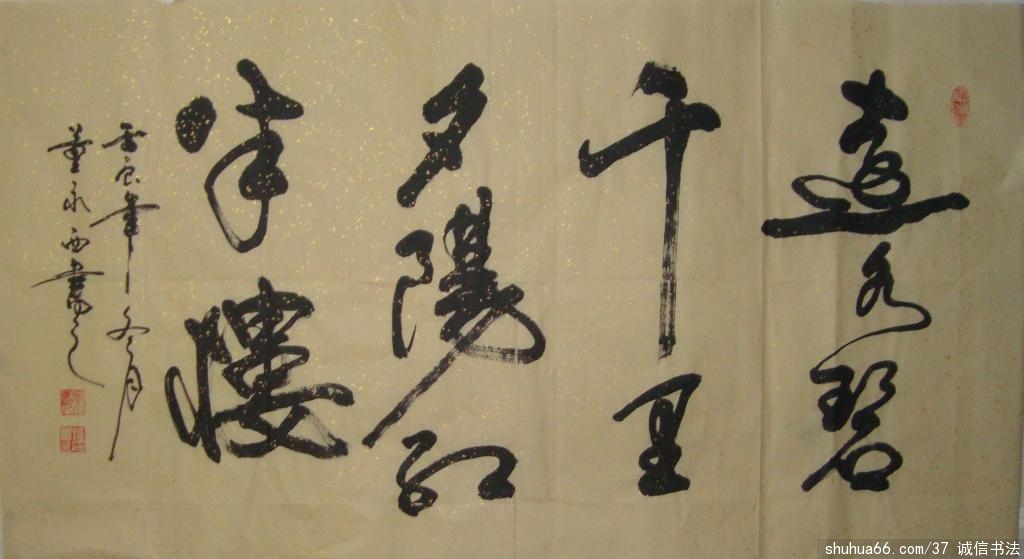 遠水碧
千里
夕陽紅
半樓
壬辰年冬月
董永西書之
shuhua66.com/37 诚信书法